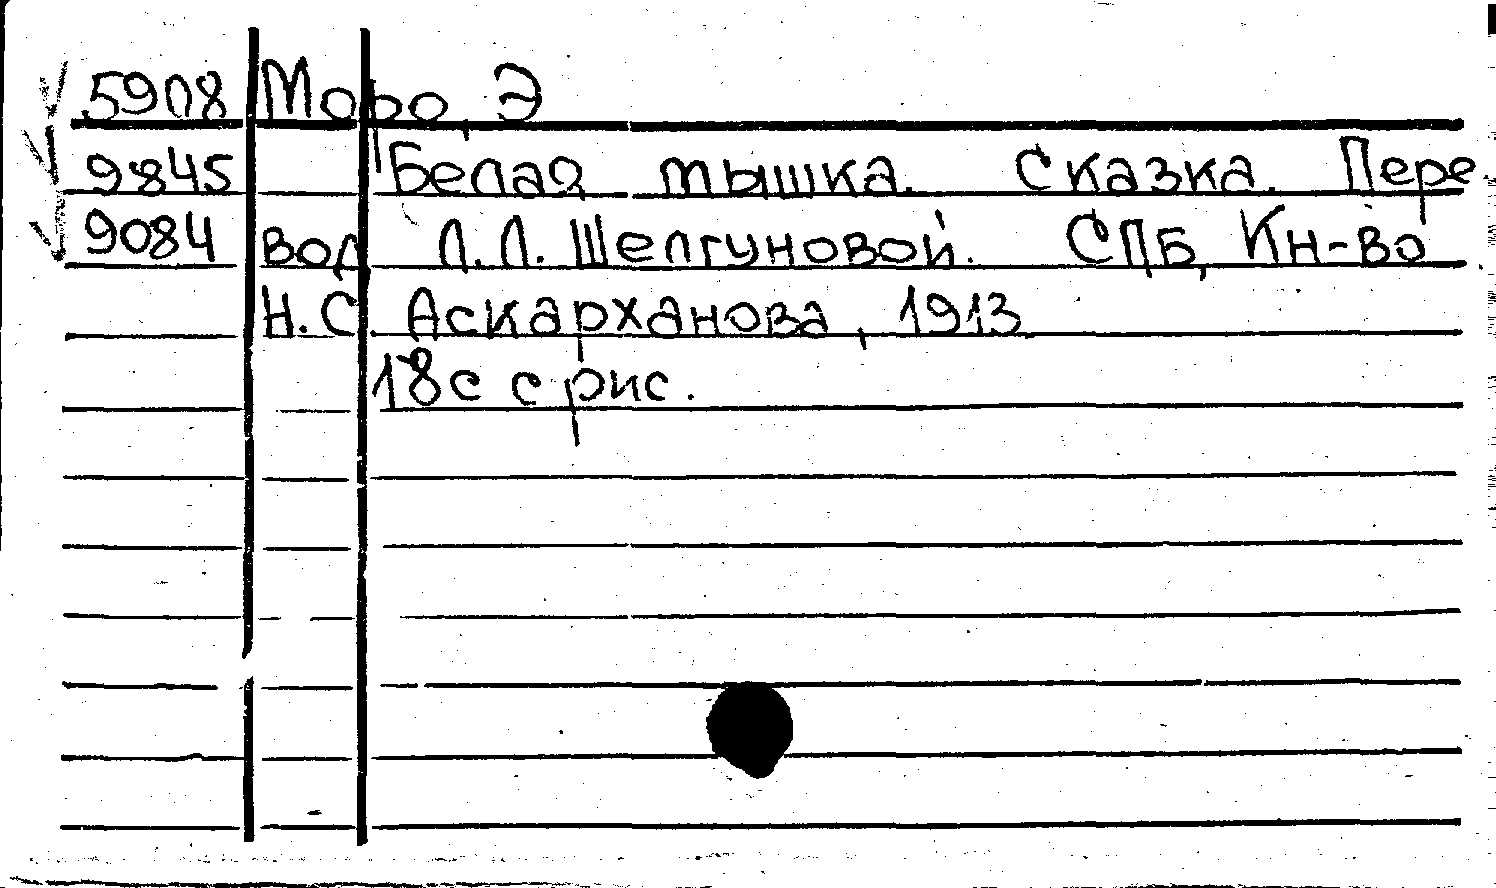 5908 Моро, Э
9845 Белая мышка. Сказка. Пере
9084 вод Л.Л. Шелгуновой. СПБ, Кн-во
Н.С. Аскарханова, 1913
18с с рис.